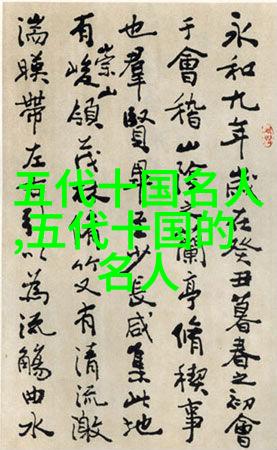 五代十国名人
,五代十国的
名人
永和九年歲在癸丑暮春之初會
于會稽山陰蘭亭脩稧事
也羣賢畢少長咸集此地
有崇山峻領茂竹又有清流激
湍暎帶左以為流觴曲水